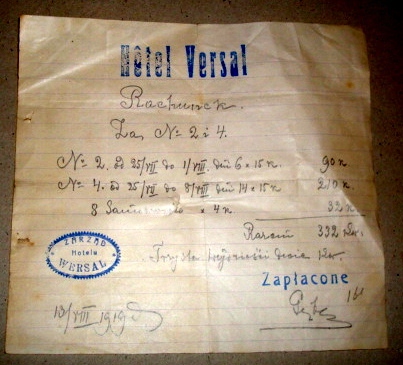 Hôtel Versal
Rachunek.
Za № 2 i 4.
№ 2. od 25/VII do 1/VIII. dni 6 x 15 k. 90 k
№ 4. od 25/VII do 8/VIII dni 14 x 15 k. 210 k.
8 x 4 k 32 k.
Razem 332 kor.
Trzysta trzydzieści dwie kor.
ZARZĄD
Hotelu
WERSAL
Zapłacone
13/VIII 1919